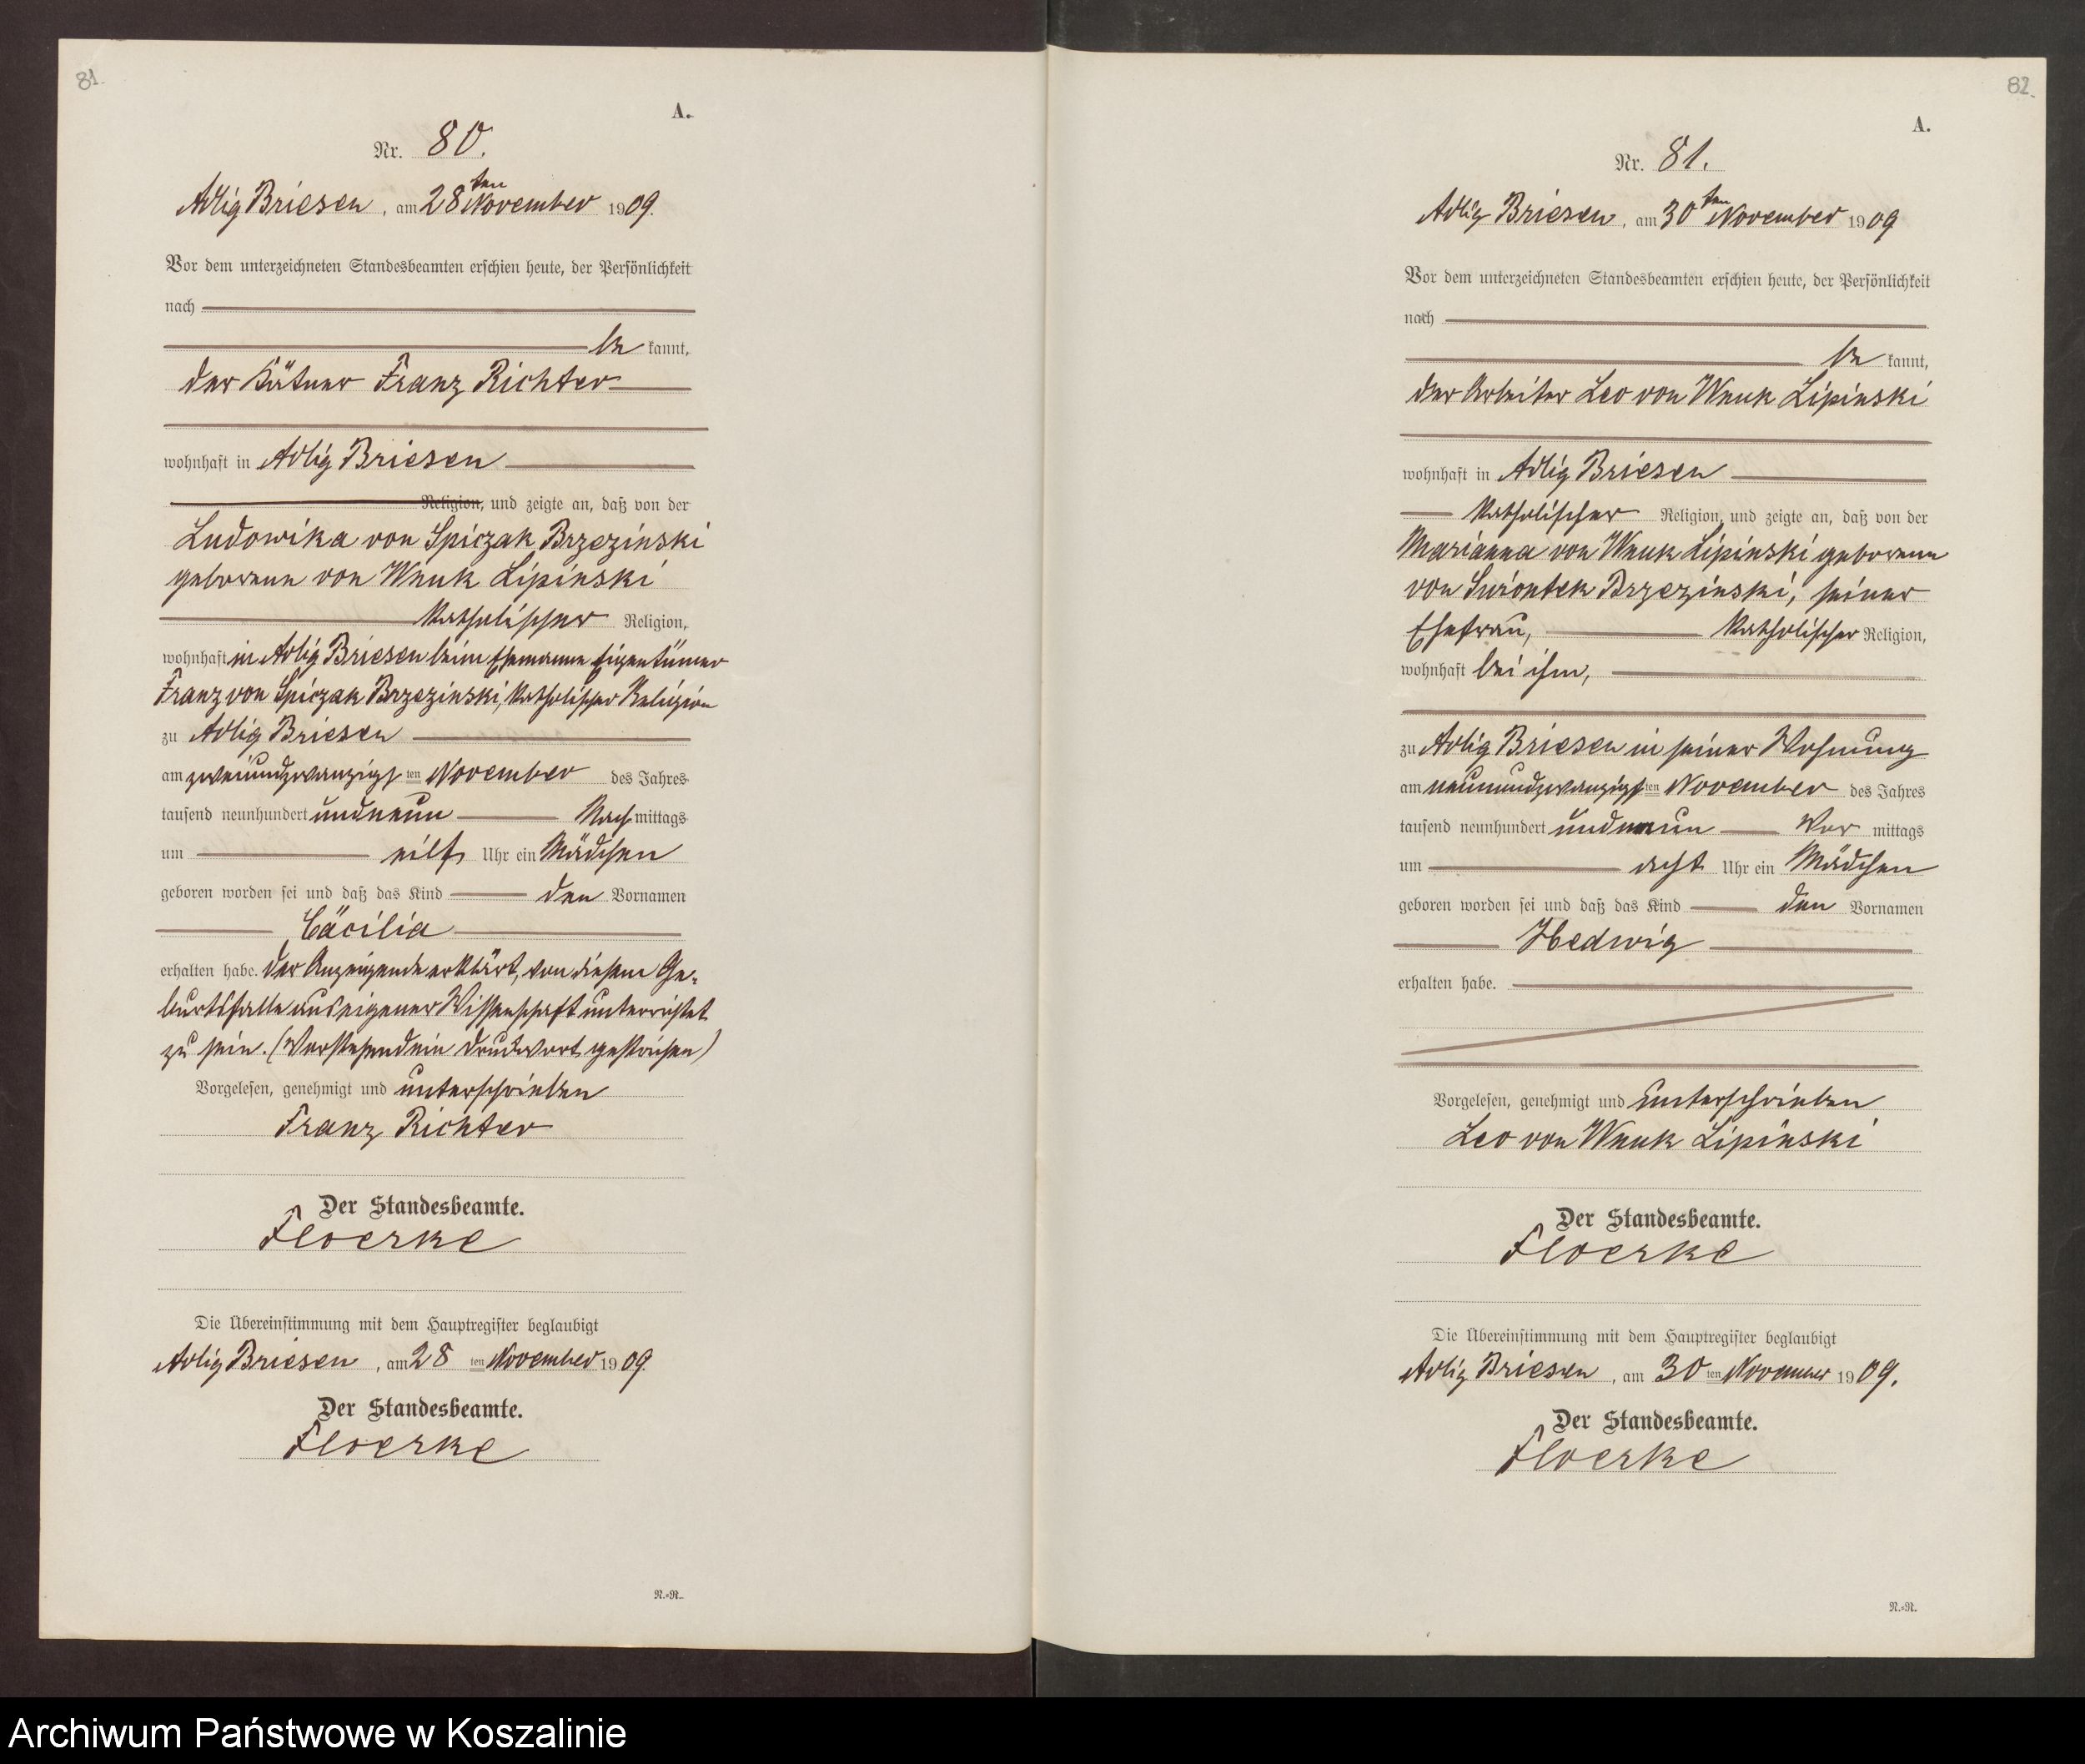 81.
A.
Nr. 80.
Adlig Briesen, am 28ten November 1909.
Vor dem unterzeichneten Standesbeamten erschien heute, der Persönlichkeit
nach
be kannt,
der Kätner Franz Richter
wohnhaft in Adlig Briesen
Religion, und zeigte an, daß von der
Ludowika von Spiczak Brzezinski
geborene von Wnuk Lipinski
katholischer Religion,
wohnhaft in Adlig Briesen beim Ehemanne Eigentümer
Franz von Spiczak Brzezinski, katholischer Religion
zu Adlig Briesen
am zweiundzwanzigsten November des Jahres
tausend neunhundert undneun Nach mittags
um eilf Uhr ein Mädchen
geboren worden sei und daß das Kind den Vornamen
Cäcilia
erhalten habe. Der Anzeigende erklärt, von diesem Ge-
burtsfalle aus eigener Wissenschaft unterrichtet
zu sein. (Vorstehend ein Druckwort gestrichen)
Vorgelesen, genehmigt und unterschrieben
Franz Richter
Der Standesbeamte.
Floerke
Die Übereinstimmung mit dem Hauptregister beglaubigt
Adlig Briesen, am 28 ten November 1909.
Der Standesbeamte.
Floerke
N.=R.
82.
A.
Nr. 81.
Adlig Briesen, am 30ten November 1909
Vor dem unterzeichneten Standesbeamten erschien heute, der Persönlichkeit
nach
be kannt,
der Arbeiter Leo von Wnuk Lipinski
wohnhaft in Adlig Briesen
katholischer Religion, und zeigte an, daß von der
Marianna von Wnuk Lipinski geborenen
von Swiontek Brzezinski, seiner
Ehefrau, katholischer Religion,
wohnhaft bei ihm,
zu Adlig Briesen in seiner Wohnung
am neunundzwanzigsten November des Jahres
tausend neunhundert undneun Vor mittags
um acht Uhr ein Mädchen
geboren worden sei und daß das Kind den Vornamen
Hedwig
erhalten habe.
Vorgelesen, genehmigt und unterschrieben
Leo von Wnuk Lipinski
Der Standesbeamte.
Floerke
Die Übereinstimmung mit dem Hauptregister beglaubigt
Adlig Briesen, am 30 ten November 1909.
Der Standesbeamte.
Floerke
N.=R.
Archiwum Państwowe w Koszalinie